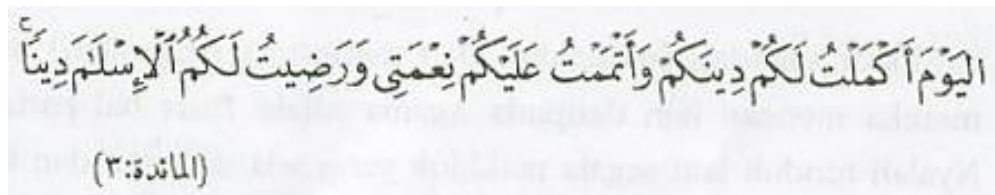 اليَوْمَ أَكْمَلْتُ لَكُمْ دِينَكُمْ وَأَتْمَمْتُ عَلَيْكُمْ نِعْمَتِي وَرَضِيتُ لَكُمُ ٱلْإِسْلَٰمَ دِينًاۚ
(المائدة:٣)